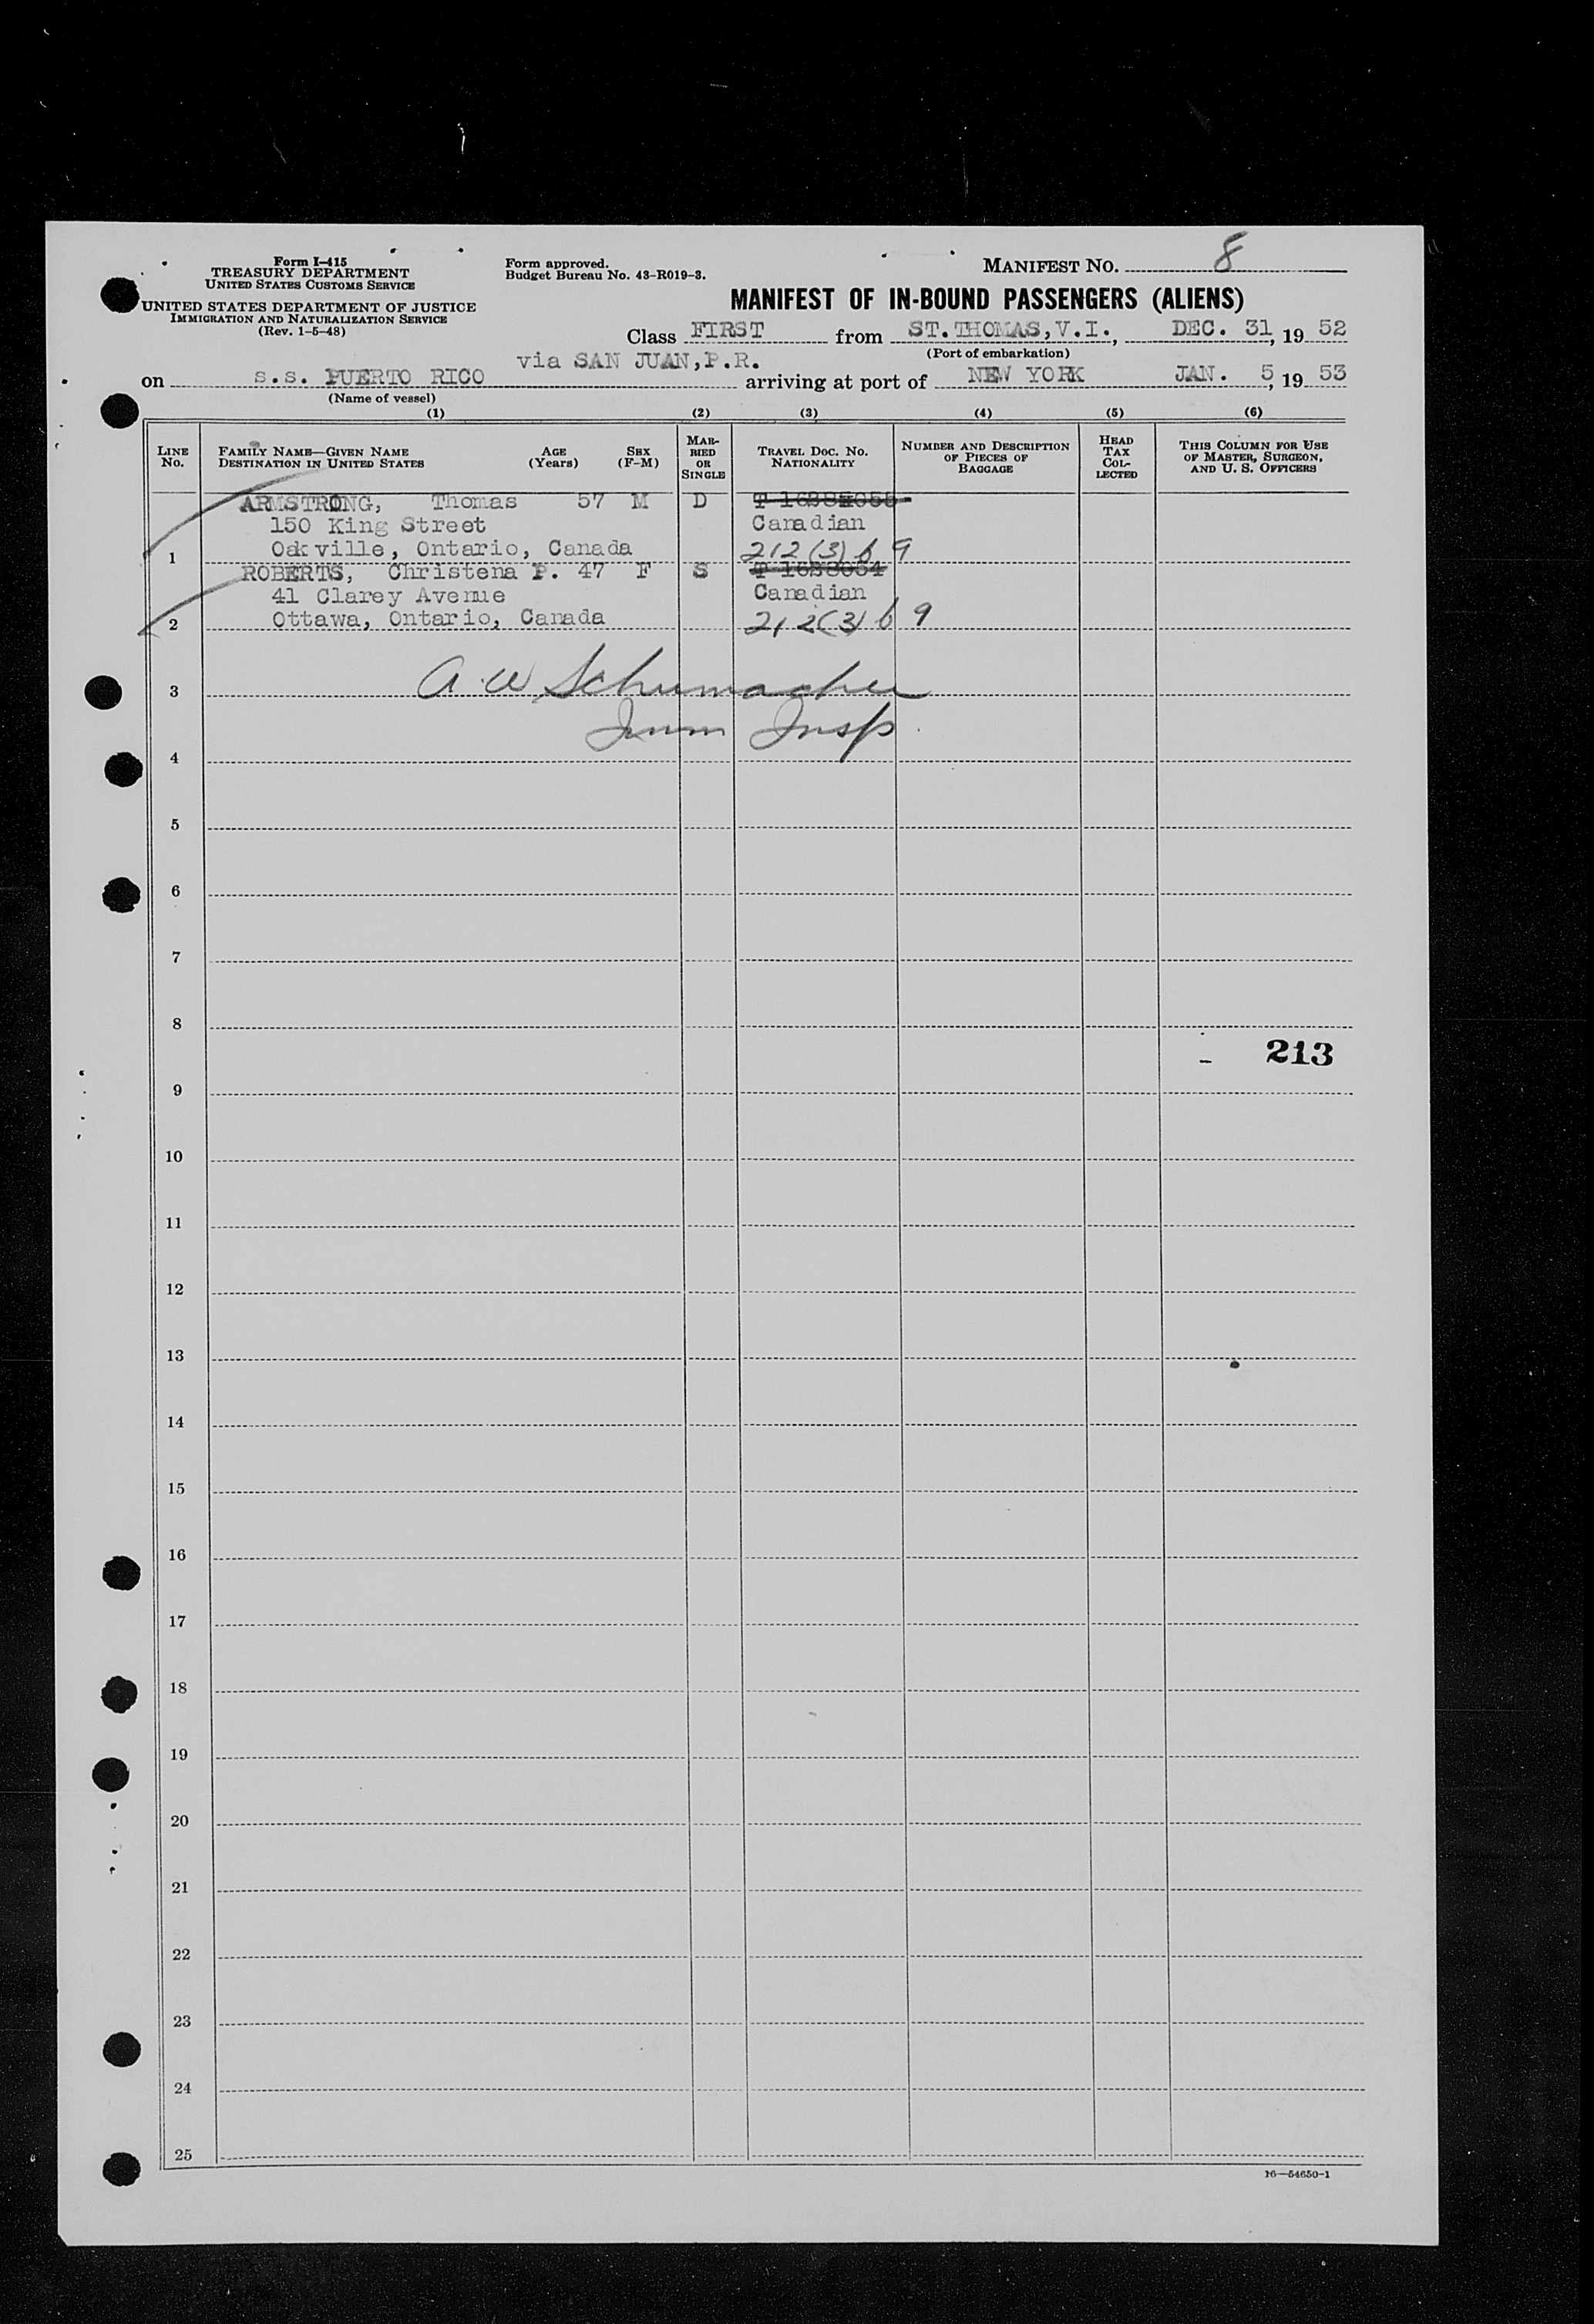 Form I-415
TREASURY DEPARTMENT
UNITED STATES CUSTOMS SERVICE
UNITED STATES DEPARTMENT OF JUSTICE
IMMIGRATION AND NATURALIZATION SERVICE
(Rev. 1-5-48)
Form approved.
Budget Bureau No. 43-R019-3.
MANIFEST NO. 8
MANIFEST OF IN-BOUND PASSENGERS (ALIENS)
Class FIRST from ST.THOMAS,V.I., DEC. 31, 19 52
(Port of embarkation)
via SAN JUAN,P.R.
on s.s. PUERTO RICO arriving at port of NEW YORK JAN. 5, 19 53
(Name of vessel)
(1) (2) (3) (4) (5) (6)
LINE No. FAMILY NAME—GIVEN NAME DESTINATION IN UNITED STATES AGE (Years) SEX (F-M) MARRIED OR SINGLE TRAVEL DOC. NO. NATIONALITY NUMBER AND DESCRIPTION OF PIECES OF BAGGAGE HEAD TAX COLLECTED THIS COLUMN FOR USE OF MASTER, SURGEON, AND U. S. OFFICERS
ARMSTRONG, Thomas 57 M D
150 King Street Canadian
1 Oakville, Ontario, Canada 212(3) b 9
ROBERTS, Christena P. 47 F S T 1628054
41 Clarey Avenue Canadian
2 Ottawa, Ontario, Canada 212(3) b 9
3 A.W Schumacher
Imm Insp.
4
5
6
7
8
213
9
10
11
12
13
14
15
16
17
18
19
20
21
22
23
24
25
16—54650-1